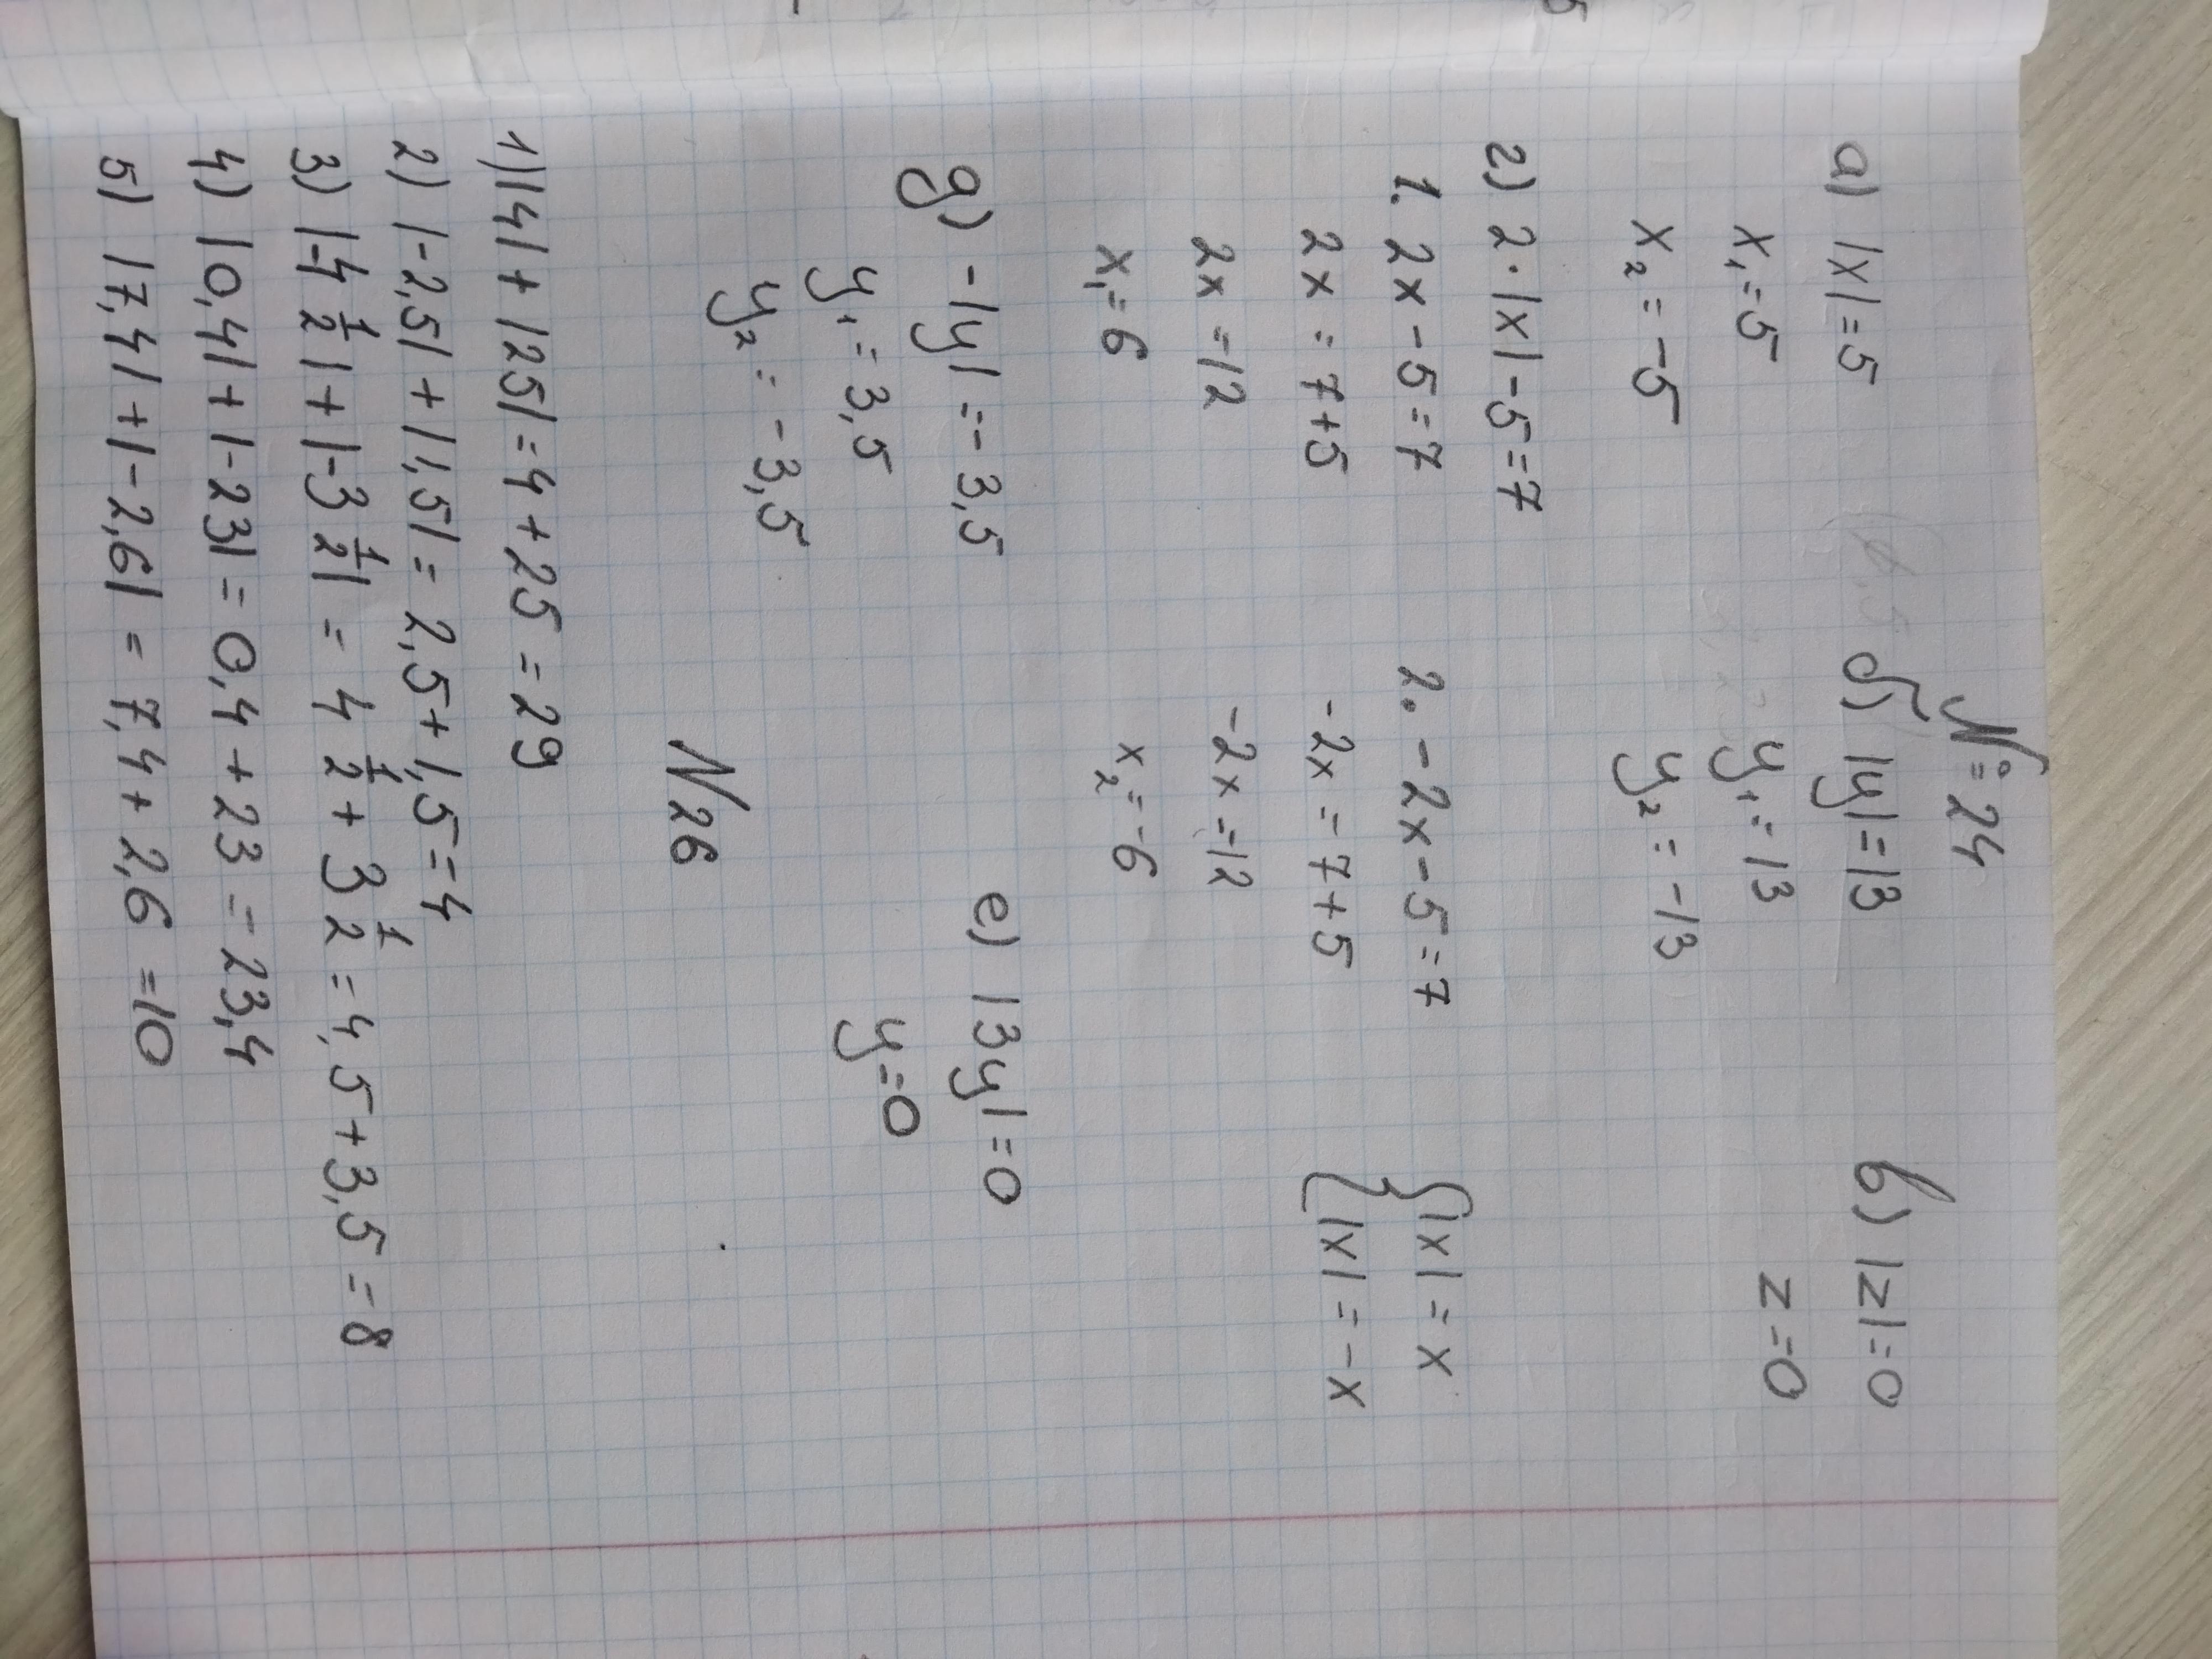 № 24
а) |x|=5 б) |y|=13 в) |z|=0
x₁=5 y₁=13 z=0
x₂=-5 y₂=-13
г) 2·|x|-5=7
1. 2x-5=7 2. -2x-5=7 {|x|=x
2x=7+5 -2x=7+5 |x|=-x
2x=12 -2x=12
x₁=6 x₂=-6
д) -|y|=-3,5 е) |3y|=0
y₁=3,5 y=0
y₂=-3,5
N26
1) |4|+|25|=4+25=29
2) |-2,5|+|1,5|=2,5+1,5=4
3) |-4 1/2|+|-3 1/2|=4 1/2+3 1/2=4,5+3,5=8
4) |0,4|+|-23|=0,4+23=23,4
5) |7,4|+|-2,6|=7,4+2,6=10